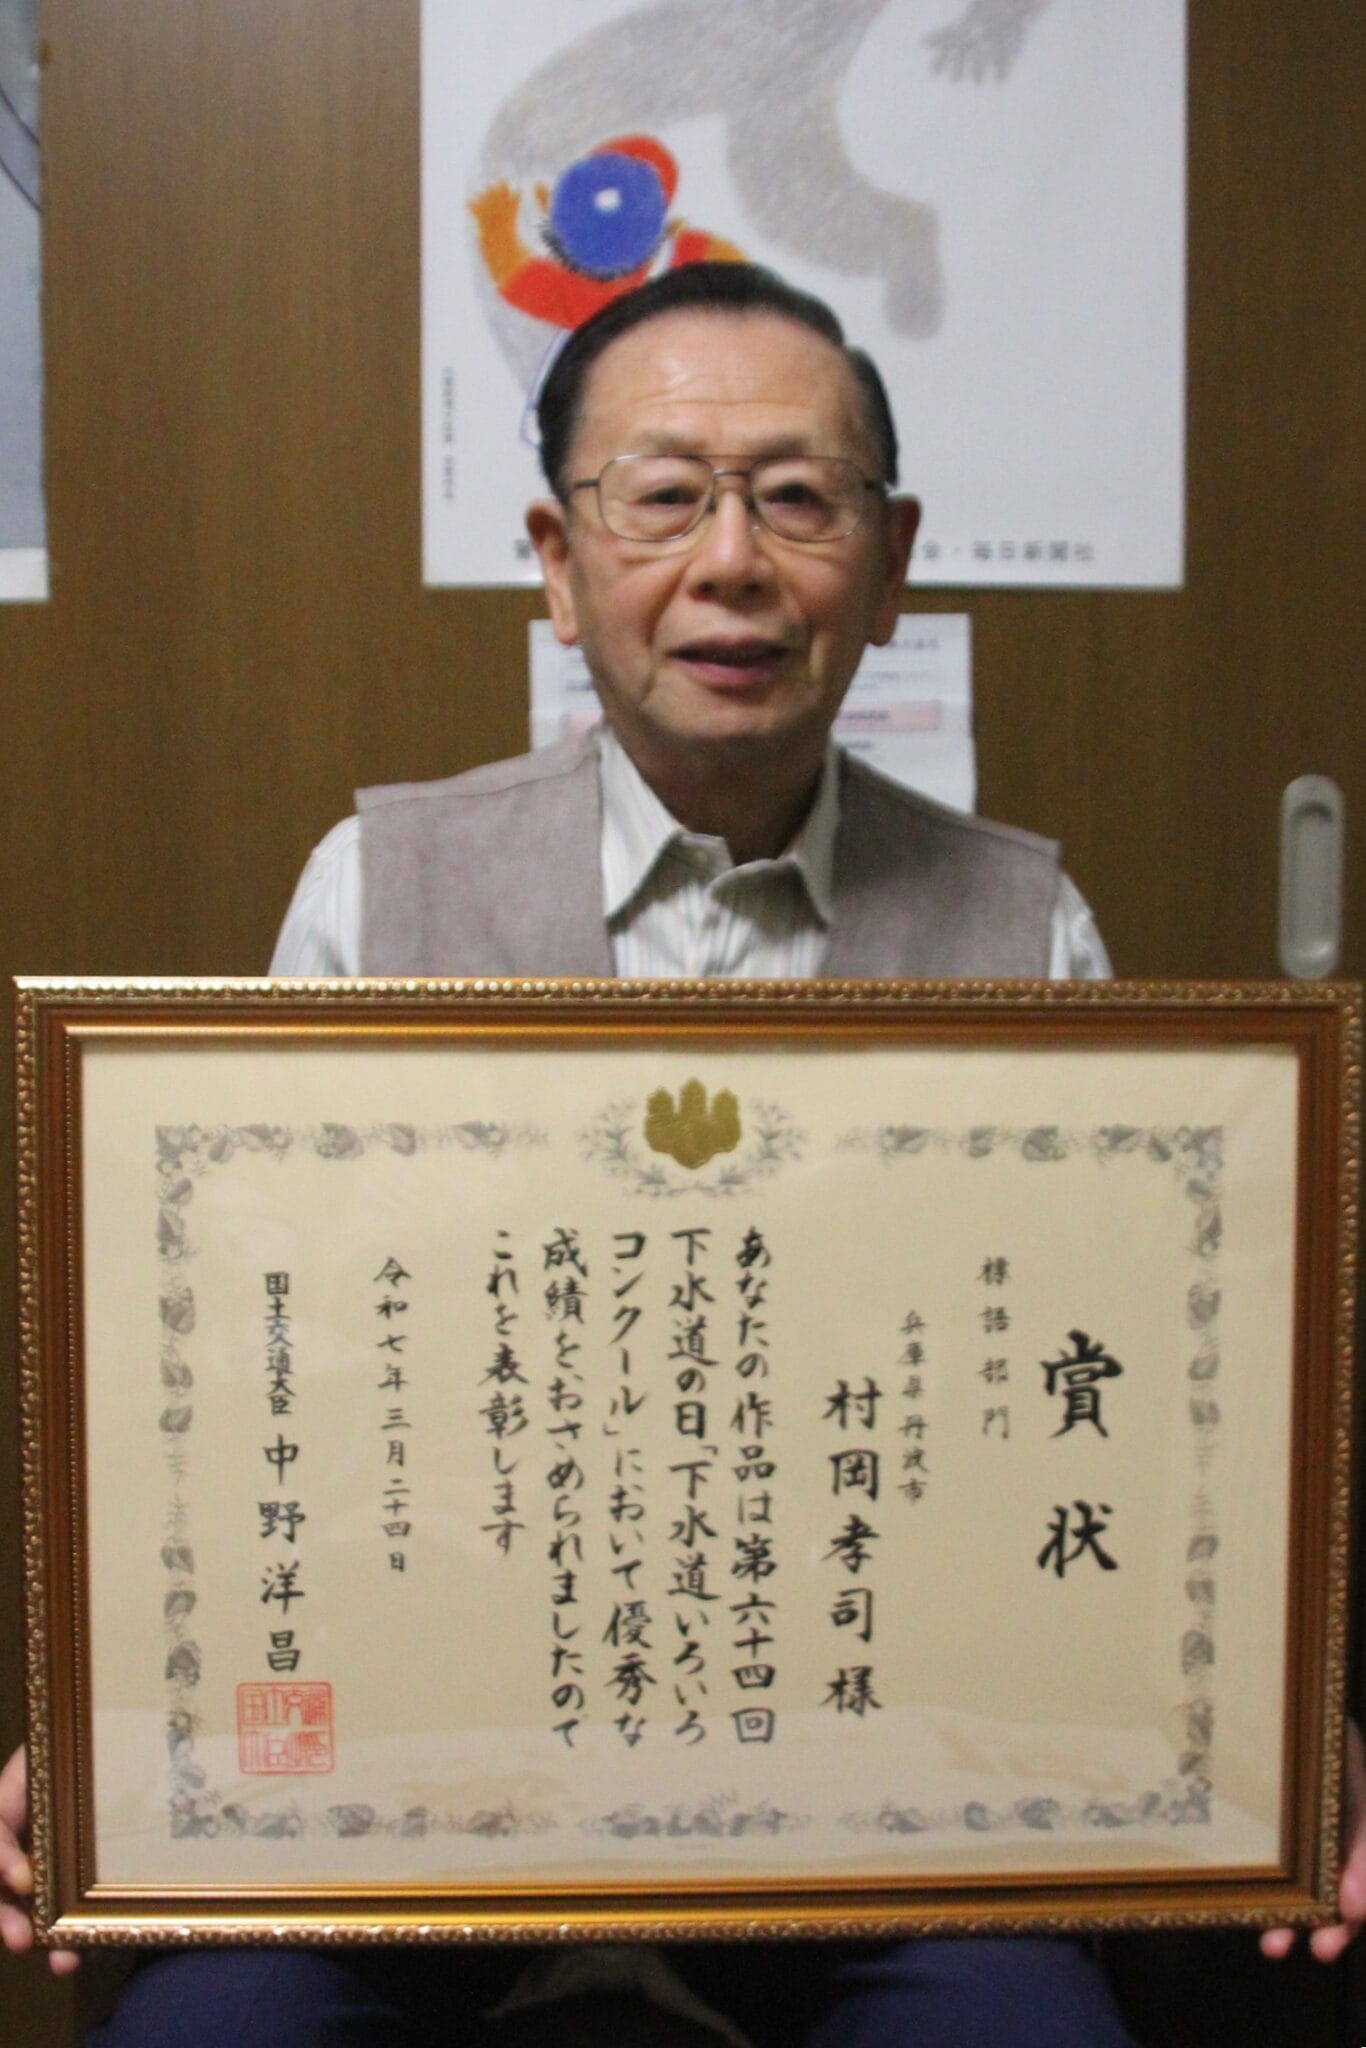 会・毎日新聞社
賞状
標語部門
兵庫県丹波市
村岡孝司様
あなたの作品は第六十四回
下水道の日「下水道いろいろ
コンクール」において優秀な
成績をおさめられましたので
これを表彰します
令和七年三月二十四日
国土交通大臣 中野洋昌